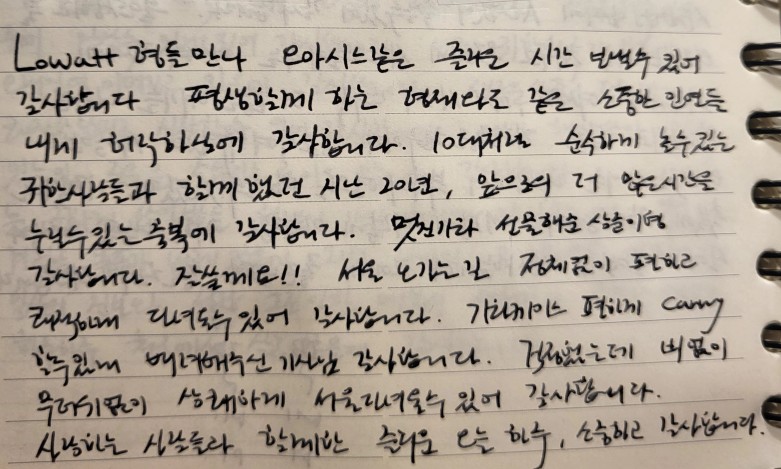 Lowatt 형들 만나 오아시스같은 즐거운 시간 보낼수 있어
감사합니다 평생함께 하는 형제와도 같은 소중한 인연들
내게 허락하심에 감사합니다. 10대처럼 순수하게 놀수있는
귀한사람들과 함께했던 지난 20년, 앞으로의 더 많은시간을
누릴수있는 축복에 감사합니다. 멋진기타 선물해준 상훈이형
감사합니다. 잘쓸께요!! 서울 오가는길 정체없이 편하고
쾌적하게 다녀올수 있어 감사합니다. 기타케이스 편하게 carry
할수있게 배려해주신 기사님 감사합니다. 걱정했는데 비없이
무더위없이 상쾌하게 서울다녀올수 있어 감사합니다.
사랑하는 사람들과 함께한 즐거운 오늘 하루, 소중하고 감사합니다.